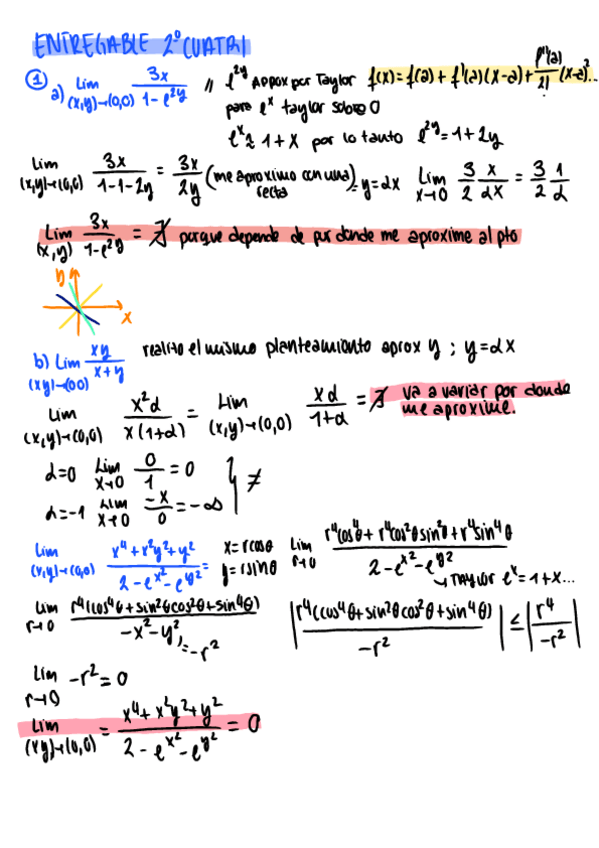 ENTREGABLE 2º CUATRI
① a) Lim (x,y)→(0,0) 3x/(1-e^2y) // e^2y Approx por Taylor f(x)=f(a)+f'(a)(x-a)+f''(a)/2! (x-a)²...
para e^x taylor sobre 0
e^x≈1+x por lo tanto e^2y=1+2y
Lim (x,y)→(0,0) 3x/(1-1-2y) = 3x/2y (me aproximo con una recta) = y=αx Lim x→0 3/2 x/αx = 3/2 1/α
Lim (x,y) 3x/(1-e^2y) = ∄ porque depende de por donde me aproxime al pto
y
x
b) Lim (xy)→(00) xy/(x+y) realizo el mismo planteamiento aprox y ; y=αx
Lim (x,y)→(0,0) x²α/(x(1+α)) = Lim (x,y)→(0,0) xα/(1+α) = ∄ va a variar por donde me aproxime.
α=0 Lim x→0 0/1 = 0
α=-1 Lim x→0 -x/0 = -∞ } ≠
Lim (x,y)→(0,0) (x⁴+x²y²+y²)/(2-e^x²-e^y²) = x=rcosθ y=rsinθ Lim r→0 (r⁴cos⁴θ+r⁴cos²θsin²θ+r⁴sin⁴θ)/(2-e^x²-e^y²)
↳ Taylor e^x=1+x...
Lim r→0 r⁴(cos⁴θ+sin²θcos²θ+sin⁴θ)/(-x²-y²) = -r² |r⁴(cos⁴θ+sin²θcos²θ+sin⁴θ)/(-r²)| ≤ |r⁴/(-r²)|
Lim r→0 -r²=0
Lim (xy)→(0,0) = (x⁴+x²y²+y²)/(2-e^x²-e^y²) = 0